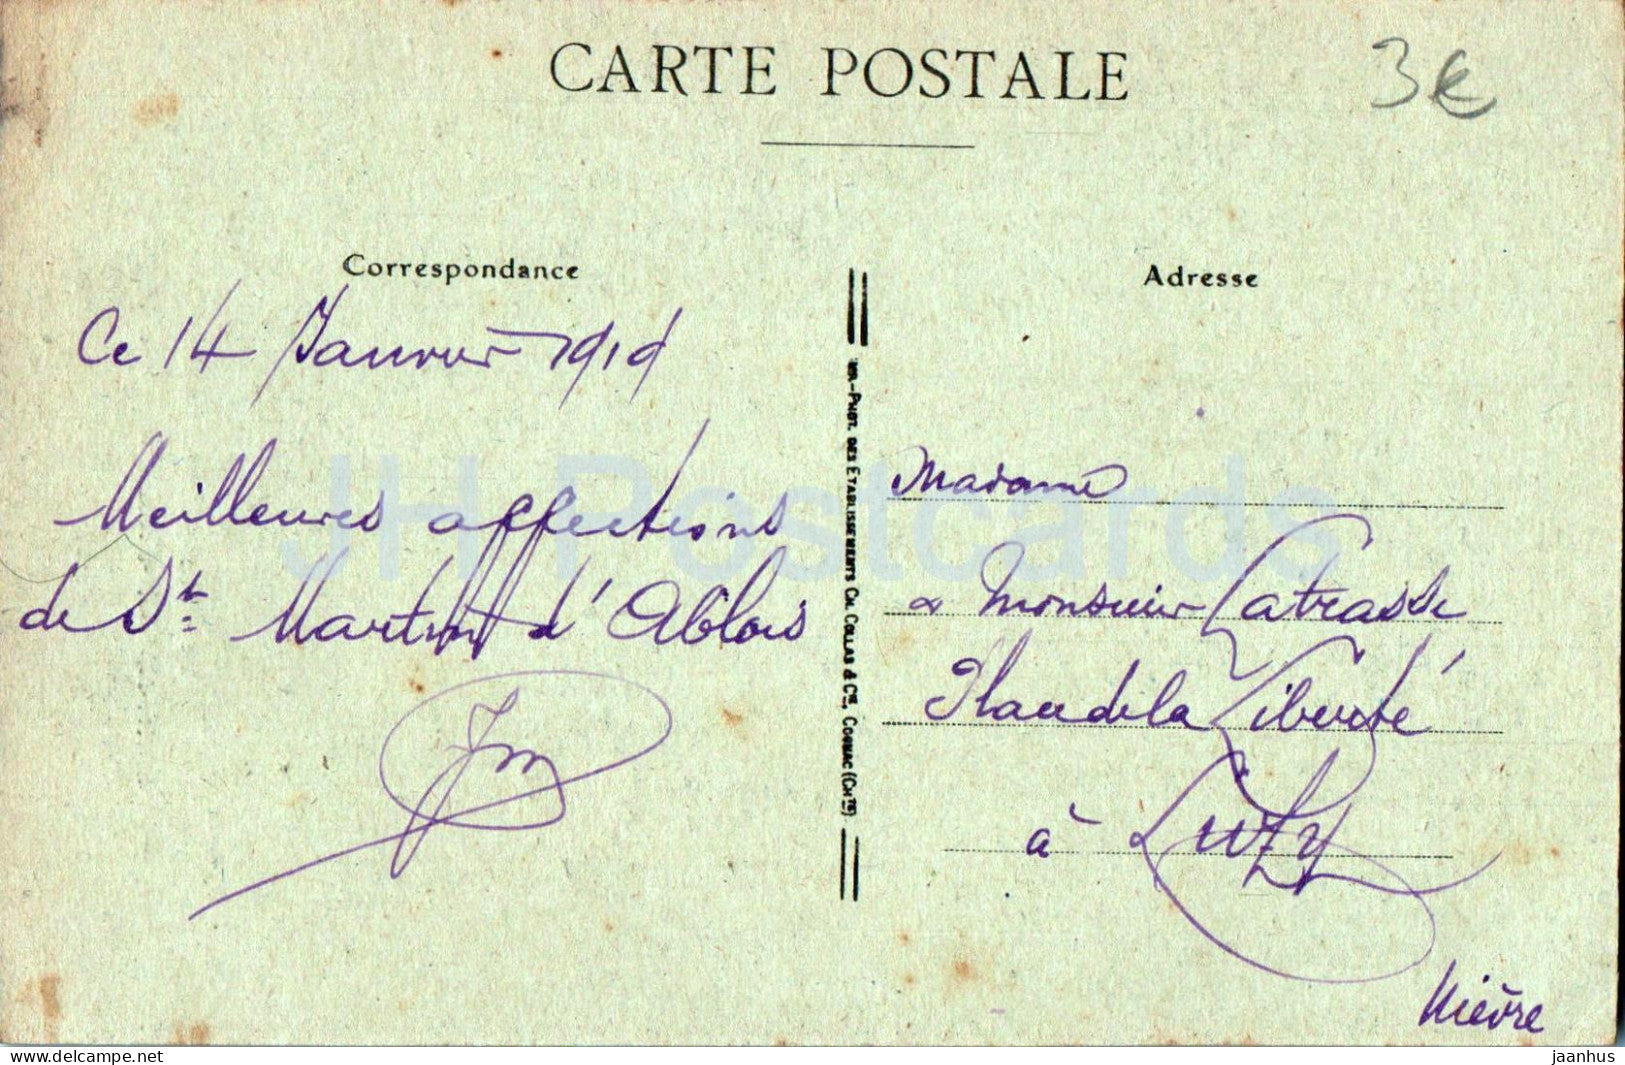 CARTE POSTALE
3€
Correspondance
Ce 14 Janvier 1919
Meilleures affections
de St Martin d'Ablois
Jm
Adresse
Madame
& Monsieur Latrasse
Place de la Liberté
à Luzy
Nièvre
PHOT. DES ETABLISSEMENTS CH. COLLAS & Cie, COGNAC (CHte)
JH Postcards
delcampe.net jaanhus